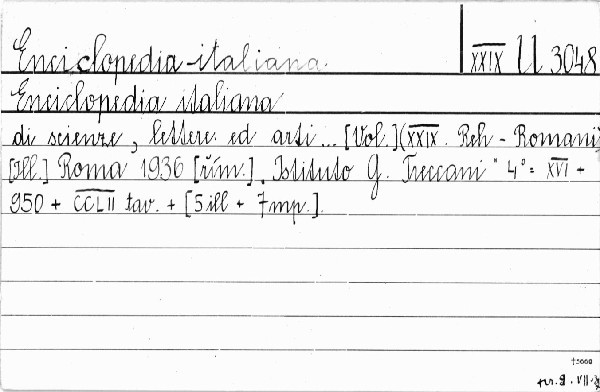 Enciclopedia italiana XXIX U 3048
Enciclopedia italiana
di scienze, lettere ed arti... [Vol.] (XXIX. Reh - Romani)
[Ill.] Roma 1936 [řím.]. Istituto G. Treccani " 4° = XVI +
950 + CCLII tav. + [5 ill + 7 mp.].
†5000